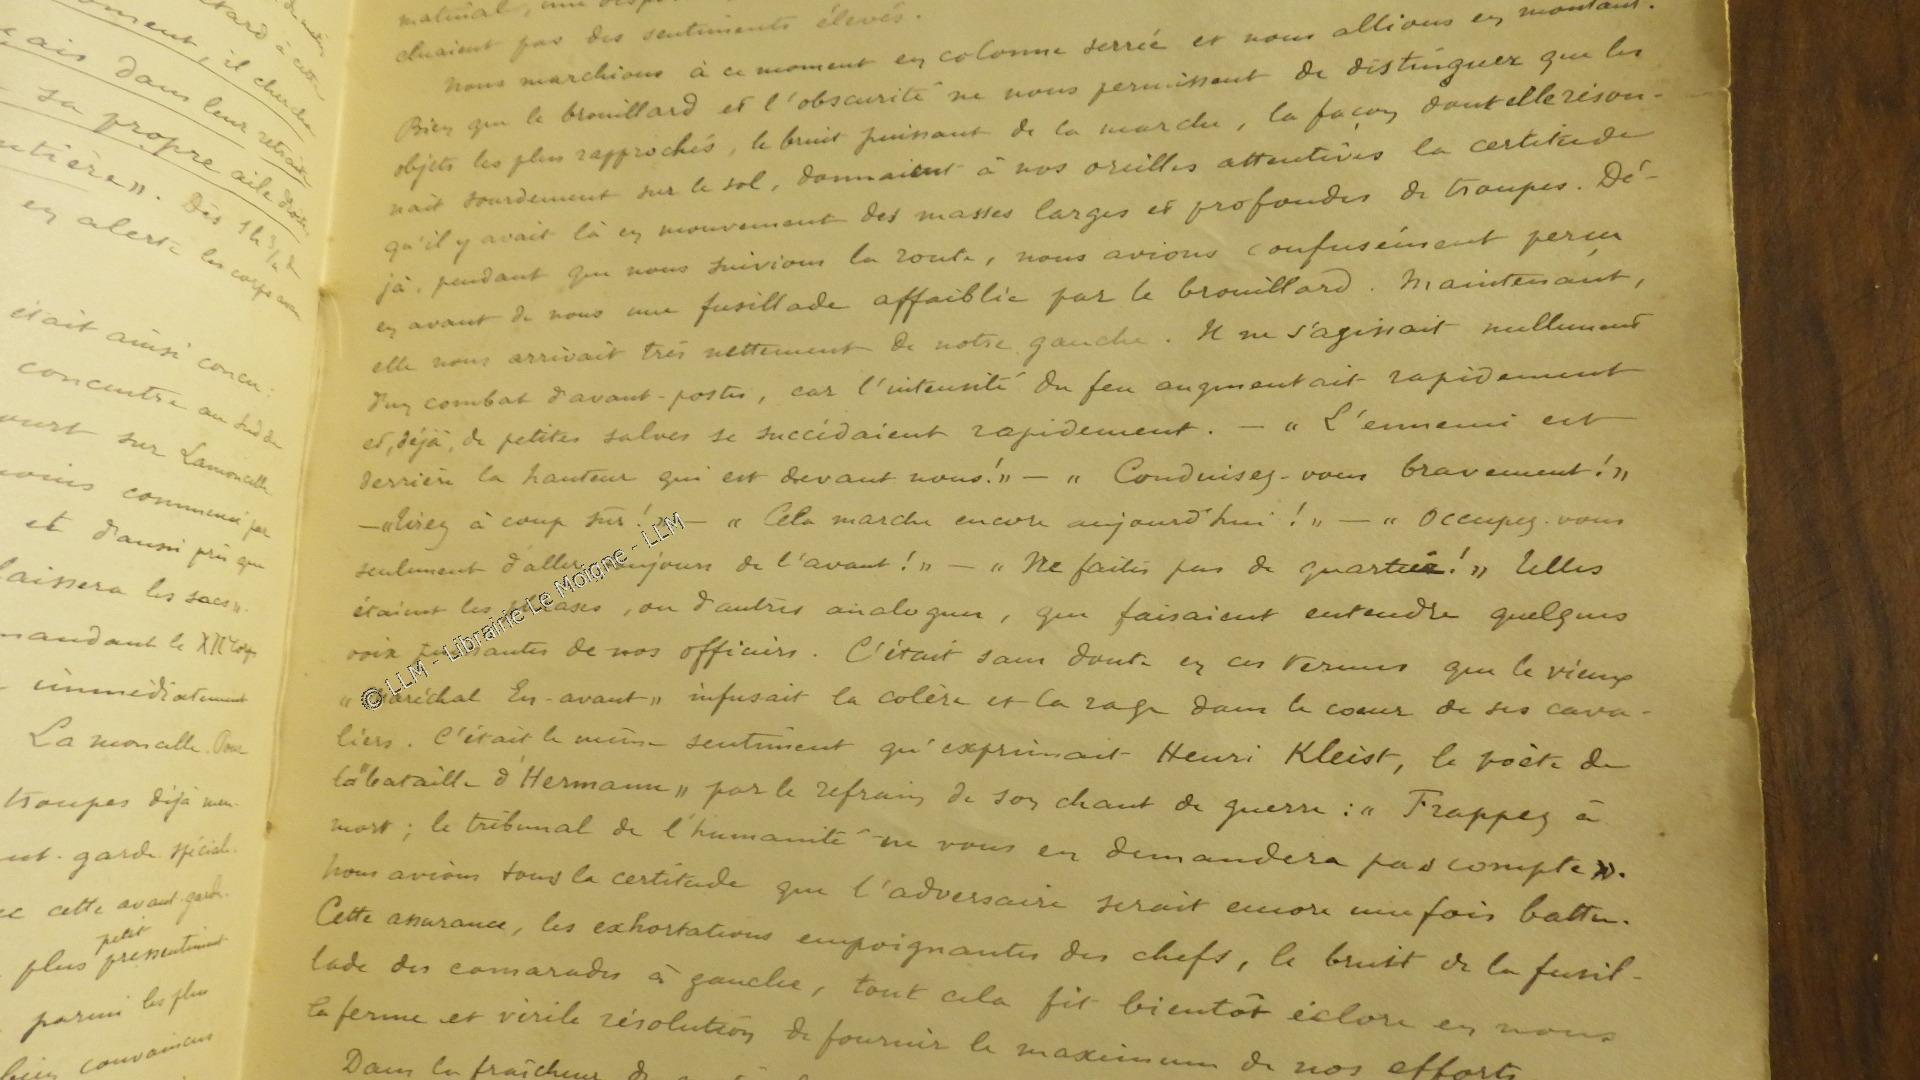 ment, il chercha
çais dans leur retraite
sa propre aile droite
entière". Dès 1h 3/4 de
en alerte les corps
était ainsi conçu :
concentre au Sud de
court sur Lamoncelle
commencé par
et d'aussi près que
laissera les sacs".
mandant le XII corps
immédiatement
La moncelle. Pour
troupes déjà
garde spécial.
cette avant-garde.
petit
plus pressentiment
parmi les plus
bien convaincus
matinal, une
cluaient pas des sentiments élevés.
Nous marchions à ce moment en colonne serrée et nous allions en montant.
Bien que le brouillard et l'obscurité ne nous permissent de distinguer que les
objets les plus rapprochés, le bruit puissant de la marche, la façon dont elle réson-
nait sourdement sur le sol, donnaient à nos oreilles attentives la certitude
qu'il y avait là en mouvement des masses larges et profondes de troupes. Dé-
jà, pendant que nous suivions la route, nous avions confusément perçu
en avant de nous une fusillade affaiblie par le brouillard. Maintenant,
elle nous arrivait très nettement de notre gauche. Il ne s'agissait nullement
d'un combat d'avant-postes, car l'intensité du feu augmentait rapidement
et, déjà, de petites salves se succédaient rapidement. — "L'ennemi est
derrière la hauteur qui est devant nous!" — "Conduisez-vous bravement!"
— "Tirez à coup sûr!" — "Cela marche encore aujourd'hui!" — "Occupez-vous
seulement d'aller toujours de l'avant!" — "Ne faites pas de quartier!" Telles
étaient les phrases, ou d'autres analogues, que faisaient entendre quelques
voix puissantes de nos officiers. C'était sans doute en ces termes que le vieux
"Maréchal En-avant" infusait la colère et la rage dans le cœur de ses cava-
liers. C'était le même sentiment qu'exprimait Henri Kleist, le poète de
la "bataille d'Hermann" par le refrain de son chant de guerre : "Frappez à
mort ; le tribunal de l'humanité ne vous en demandera pas compte".
Nous avions tous la certitude que l'adversaire serait encore une fois battu.
Cette assurance, les exhortations empoignantes des chefs, le bruit de la fusil-
lade des camarades à gauche, tout cela fit bientôt éclore en nous
la ferme et virile résolution de fournir le maximum de nos efforts
Dans la fraîcheur de
© LLM - Librairie Le Moigne - LLM